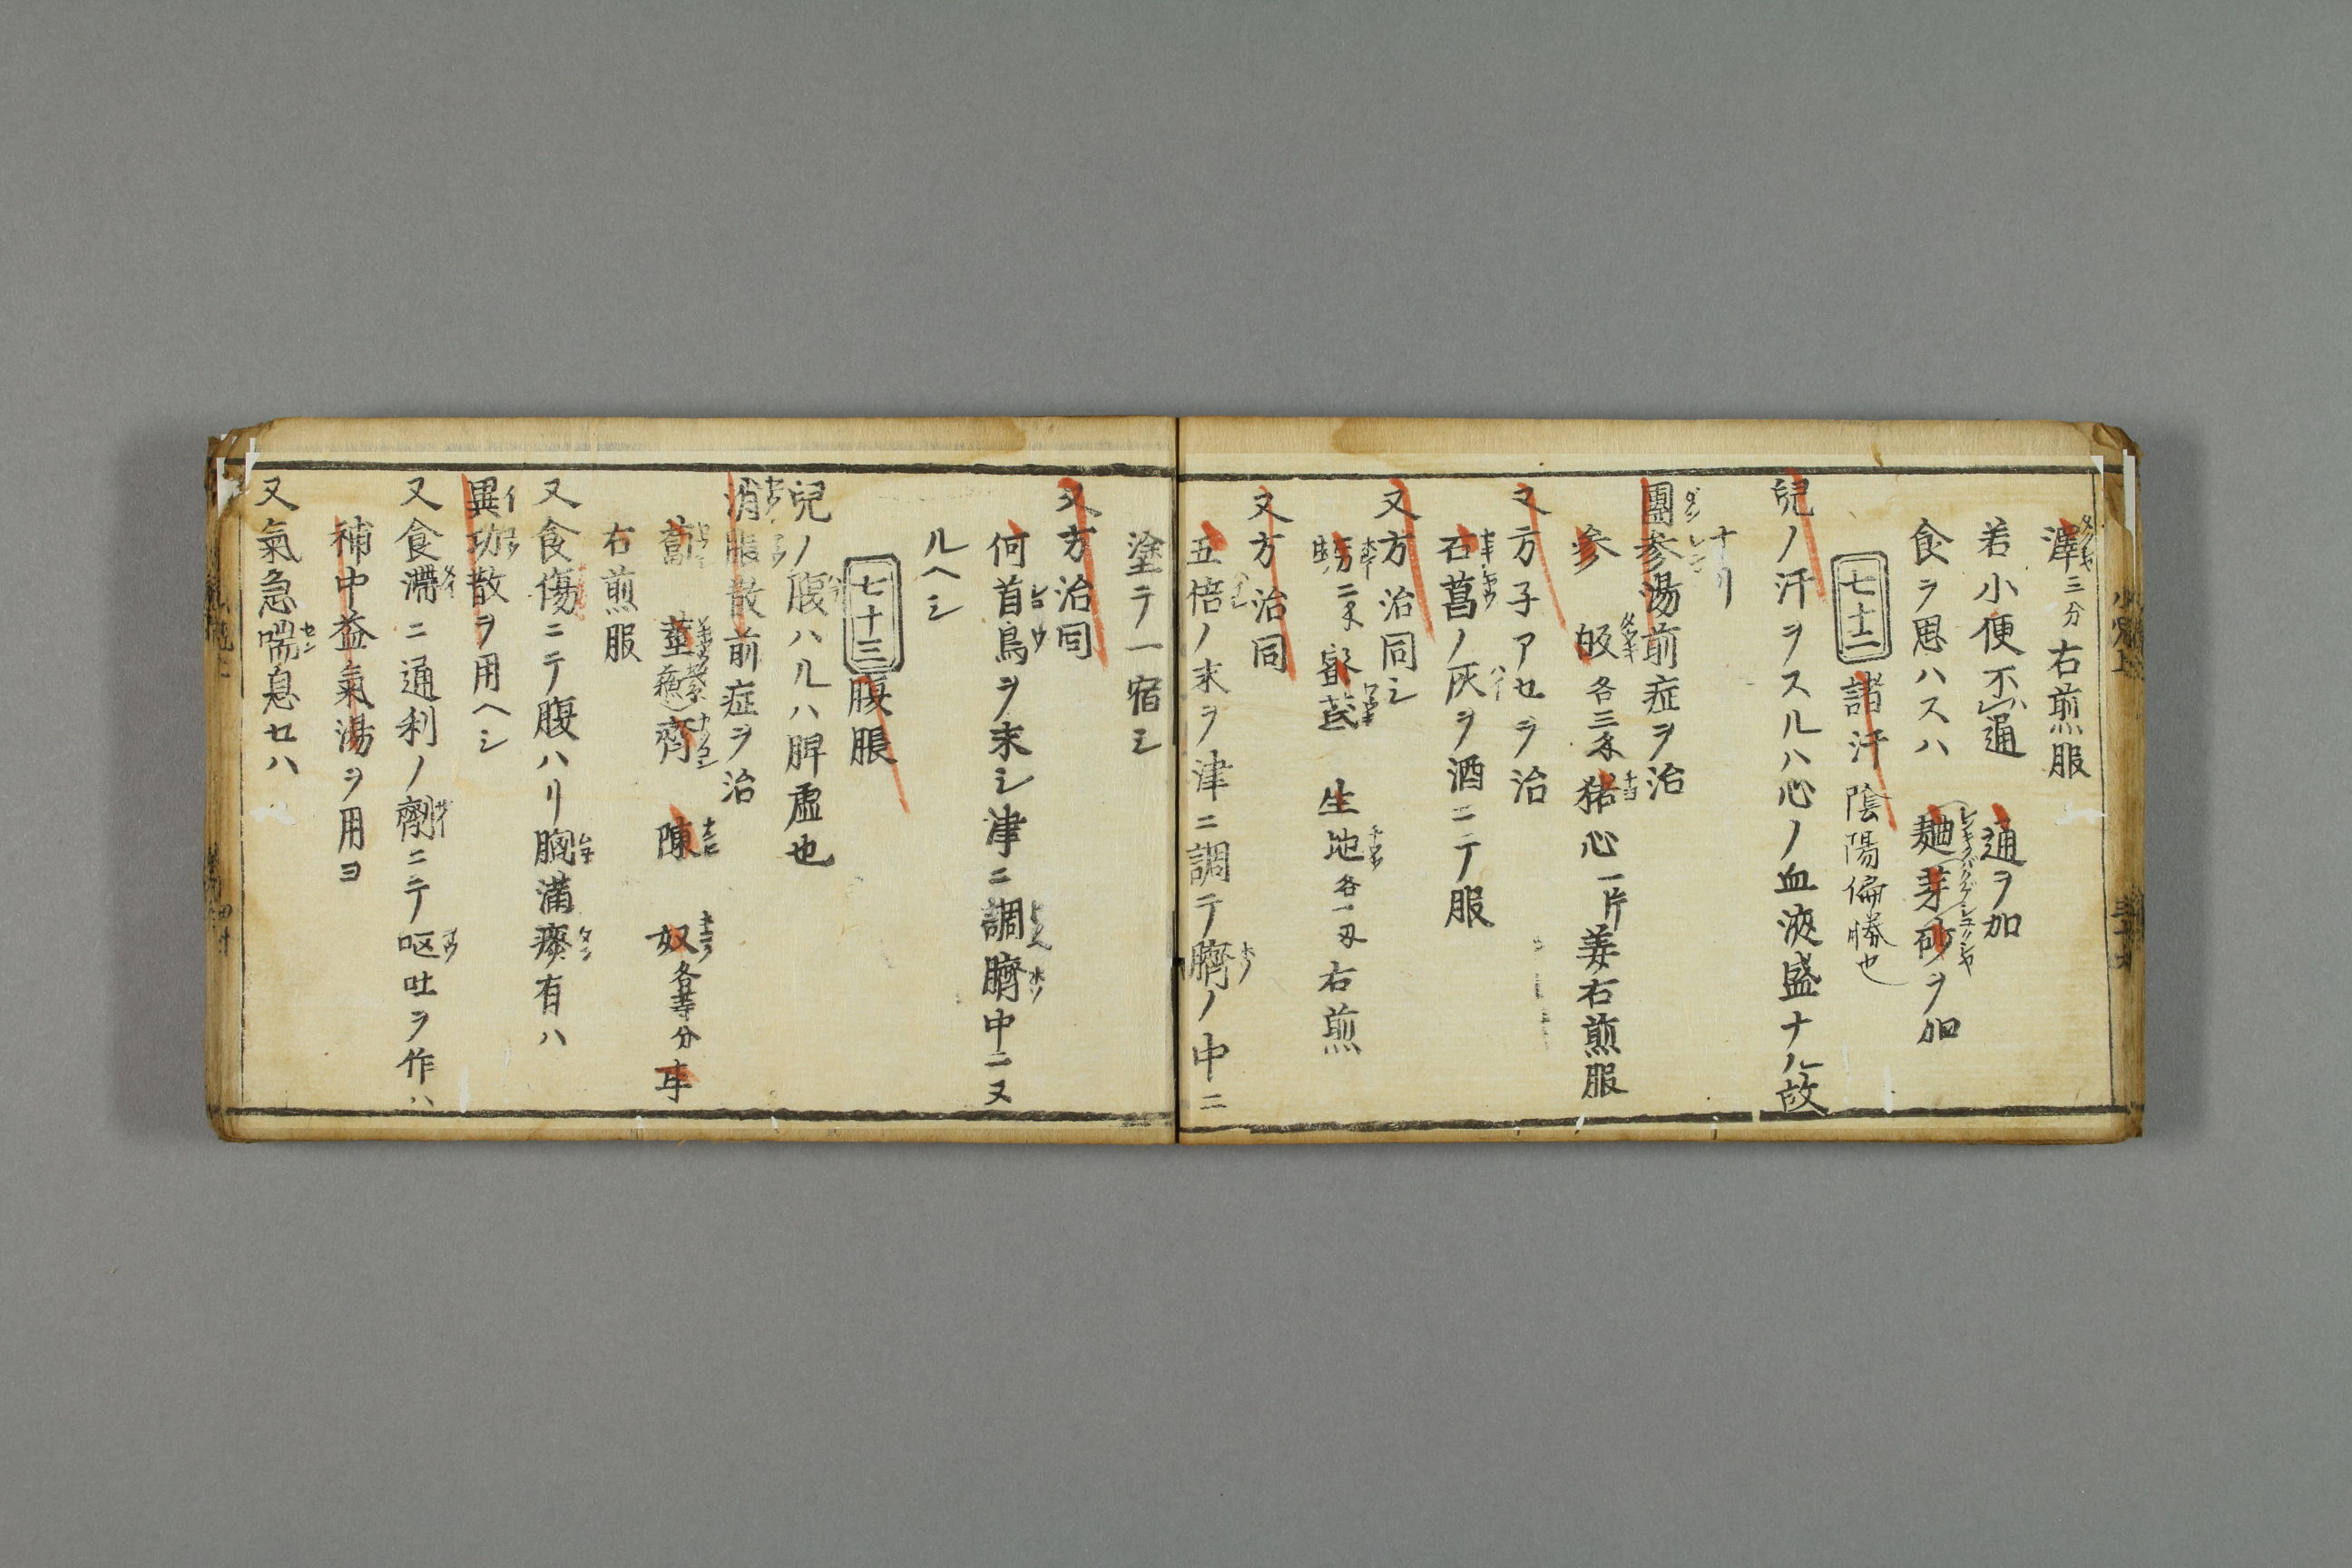 澤三分右煎服
若小便不通 通ヲ加
食ヲ思ハスハ 麯芽砂ヲ加
七十二 諸汗 陰陽偏勝也
兒ノ汗ヲスルハ心ノ血液盛ナル故
ナリ
團参湯前症ヲ治
参 各三 猪心一片姜右煎服
又方子アセヲ治
石菖ノ灰ヲ酒ニテ服
又方治同シ
生地各一 右煎
又方治同
五倍ノ末ヲ津ニ調テ臍ノ中ニ
塗テ一宿シ
又方治同
何首烏ヲ末シ津ニ調臍中ニヌ
ルヘシ
七十三 腹脹
兒ノ腹ハルハ脾虚也
消脹散前症ヲ治
蔔 莖 蘓 齊 陳 奴各等分
右煎服
又食傷ニテ腹ハリ胸滿痰有ハ
異功散ヲ用ヘシ
又食滯ニ通利ノ劑ニテ呕吐ヲ作ハ
補中益氣湯ヲ用ヨ
又氣急喘息セハ